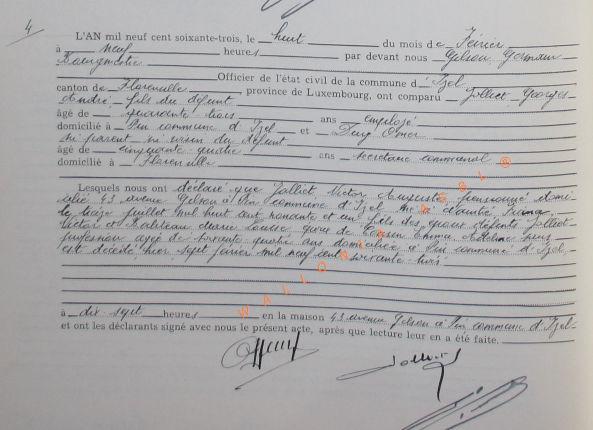 4
L'AN mil neuf cent soixante-trois, le huit du mois de Février
à neuf heures par devant nous Gilson Germain
Bourgmestre
Officier de l'état civil de la commune d' Izel
canton de Florenville province de Luxembourg, ont comparu Jolliot Georges-
André, fils du défunt
âgé de quarante trois ans employé
domicilié à Pin commune d'Izel et Dury Omer
ni parent ni voisin du défunt
âgé de cinquante quatre ans secrétaire communal
domicilié à Florenville
Lesquels nous ont déclaré que Jolliot, Victor Auguste pensionné domi-
cilié 43 avenue Gilson à Pin commune d'Izel né à
le treize juillet mil huit cent nonante et un fils des époux défunts Jolliot
Victor et Marie Louise, époux de Emma sans
profession âgée de soixante quatre ans domiciliée à Pin commune d'Izel-
est décédé hier sept février mil neuf cent soixante trois
à dix sept heures en la maison 43 avenue Gilson à Pin commune d'Izel-
et ont les déclarants signé avec nous le présent acte, après que lecture leur en a été faite.
WALLONIA ASBL ®